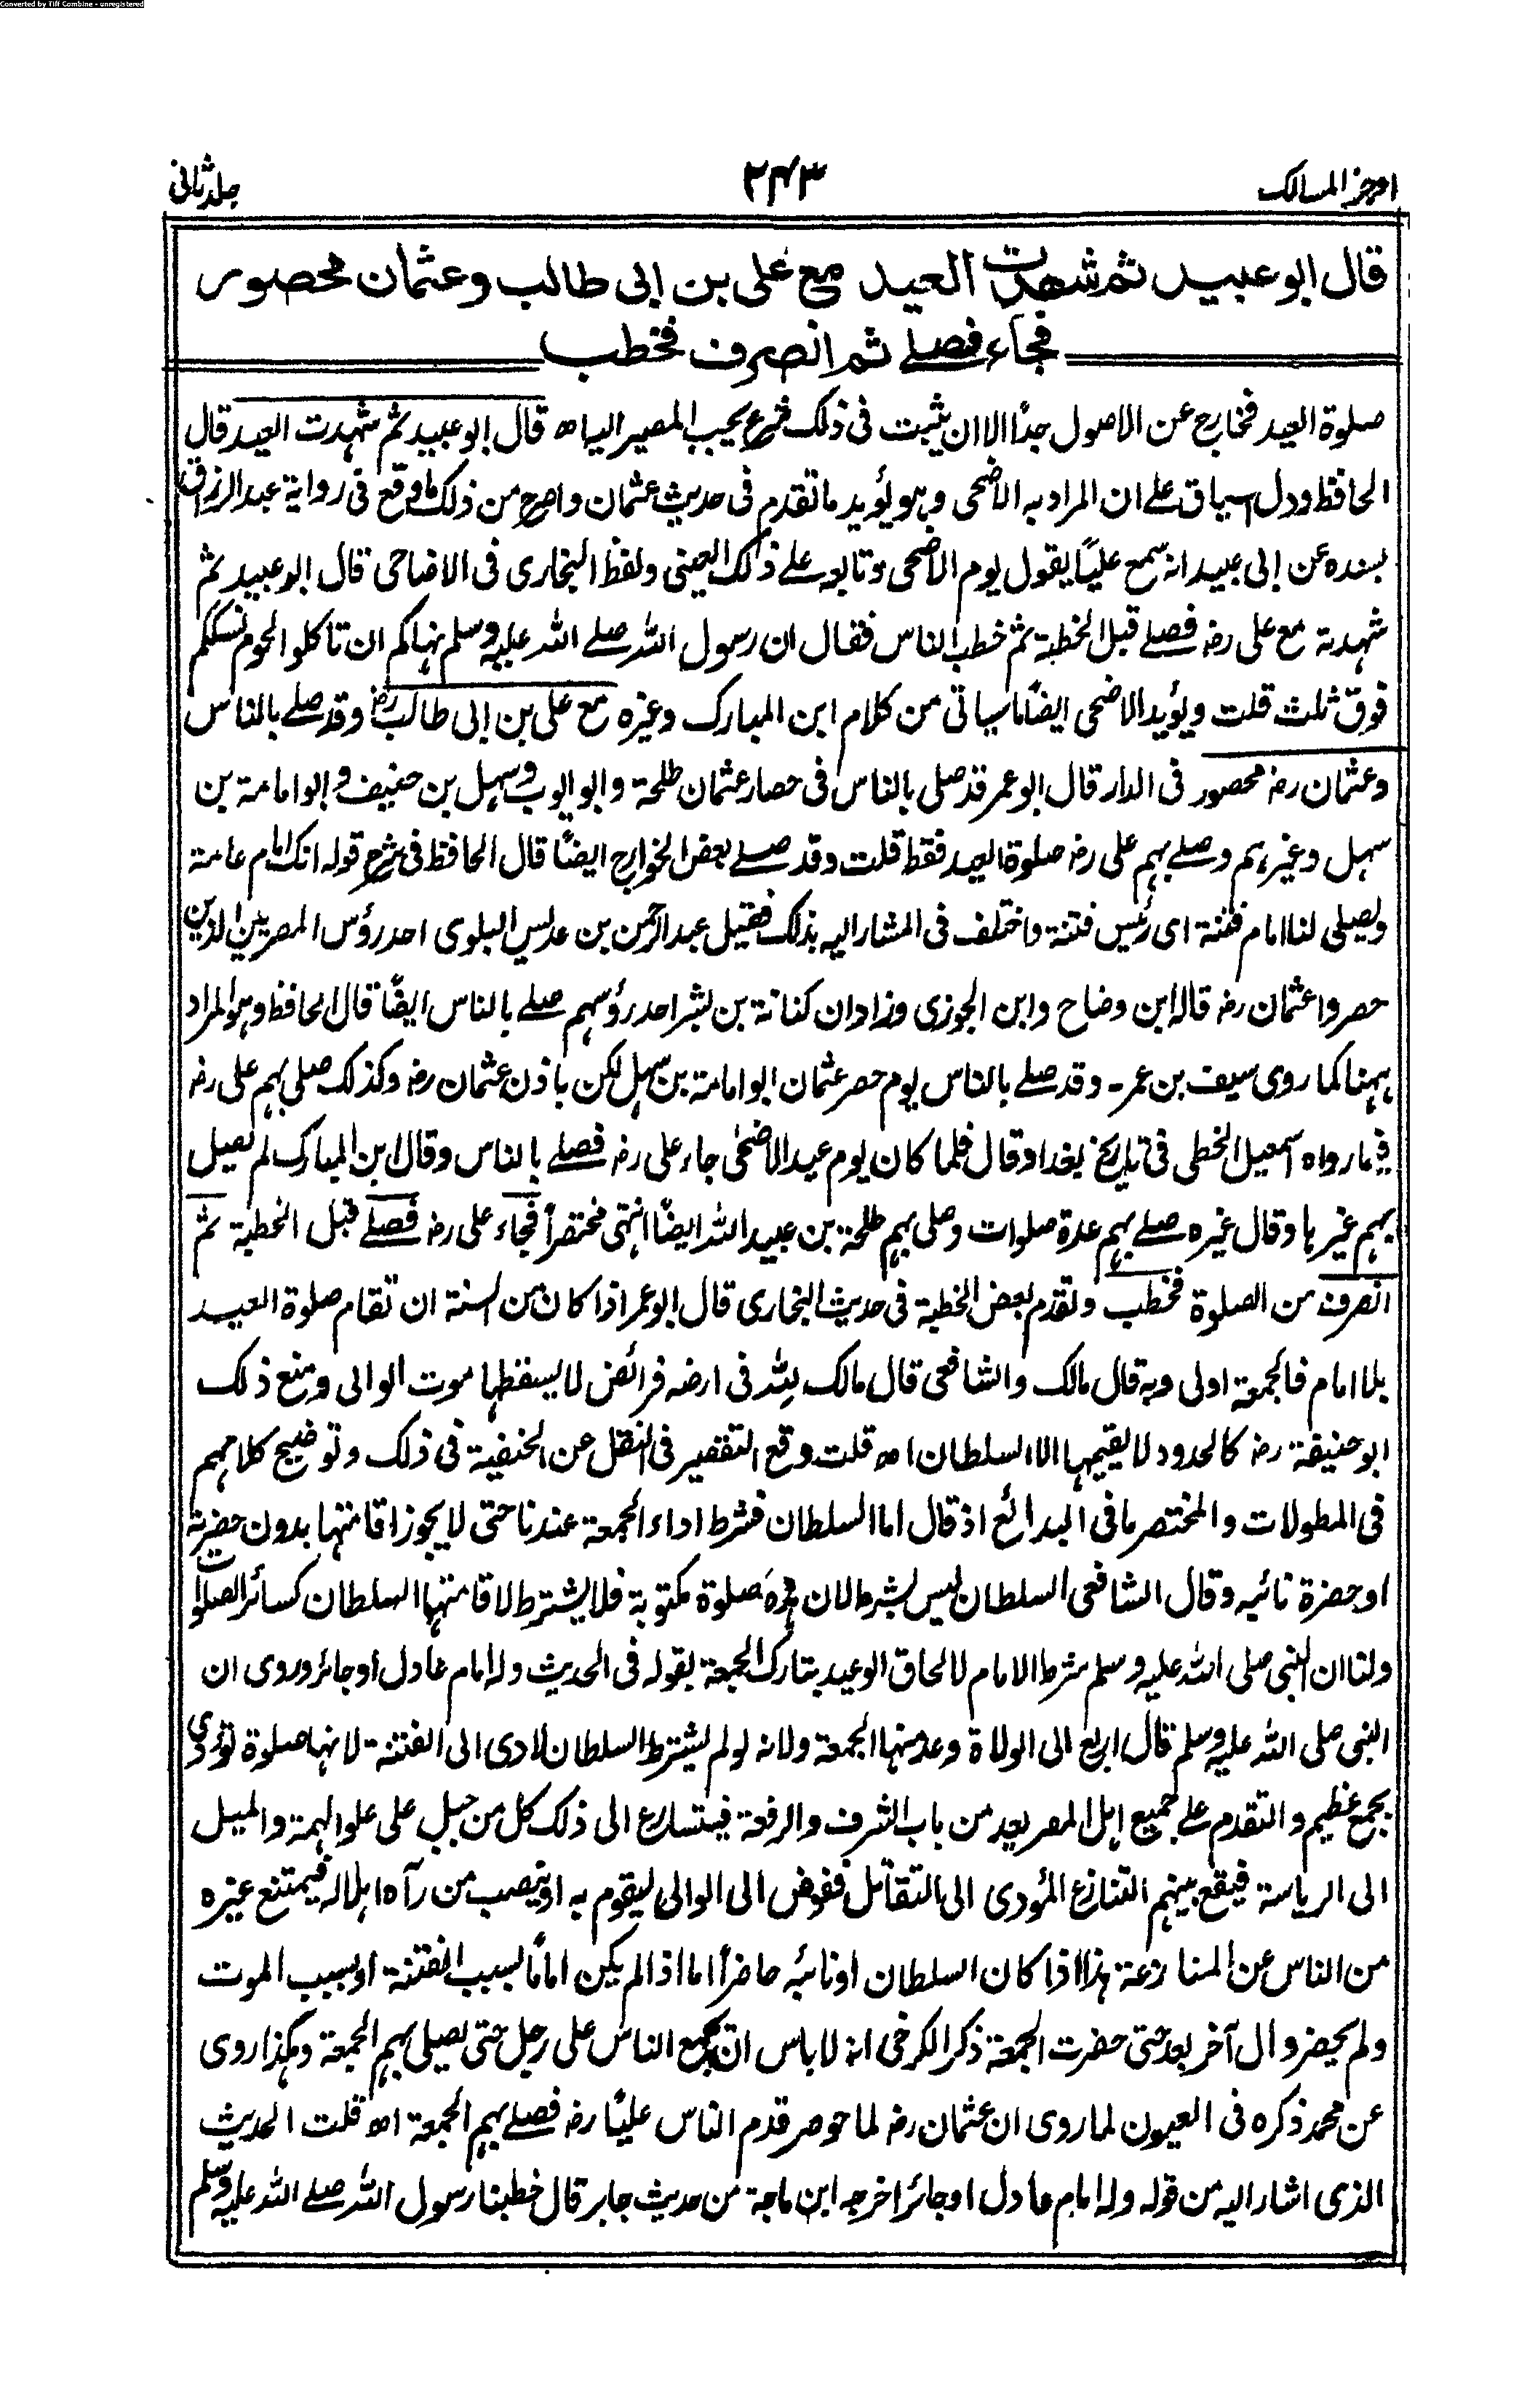 Converted by Tiff Combine - unregistered
اوجز المسالک
۲۴۳
جلد ثانی
قال ابو عبید ثم شهدت العید مع علی بن ابی طالب وعثمان محصور
فجاء فصلے ثم انصرف فخطب
صلوة العید فخارج عن الاصول جداً الا ان یثبت فی ذلک شرع یجب المصیر الیہ اھ قال ابو عبید ثم شهدت العید قال
الحافظ ودل السیاق علے ان المراد بہ الاضحی وہو یؤید ما تقدم فی حدیث عثمان واصرح من ذلک ما وقع فی روایة عبد الرزاق
بسنده عن ابی عبید انہ سمع علیاً یقول یوم الاضحی وتابعہ علے ذلک العینی ولفظ البخاری فی الاضاحی قال ابو عبید ثم
شہدتہ مع علی رض فصلے قبل الخطبة ثم خطب الناس فقال ان رسول اللہ صلے اللہ علیہ وسلم نہاکم ان تاکلوا لحوم نسککم
فوق ثلث قلت ویؤید الاضحی ایضاً ما سیاتی من کلام ابن المبارک وغیره مع علی بن ابی طالب رض وقد صلے بالناس
وعثمان رض محصور فی الدار قال ابو عمر قد صلی بالناس فی حصار عثمان طلحة وابو ایوب وسہل بن حنیف وابو امامة بن
سہل وغیرہم وصلے بہم علی رض صلوة العید فقط قلت وقد صلے بعض الخوارج ایضاً قال الحافظ فی شرح قولہ انک امام عامة
ویصلی لنا امام فتنة ای رئیس فتنة واختلف فی المشار الیہ بذلک فقیل عبد الرحمن بن عدیس البلوی احد رؤس المصریین الذین
حصروا عثمان رض قالہ ابن وضاح وابن الجوزی وزاد ان کنانة بن بشر احد رؤسہم صلے بالناس ایضاً قال الحافظ وہو المراد
ہہنا کما روی سیف بن عمر۔ وقد صلے بالناس یوم حصر عثمان ابو امامة بن سہل لکن باذن عثمان رض وکذلک صلی بہم علی رض
فیما رواه اسمعیل الخطی فی تاریخ بغداد وقال فلما کان یوم عید الاضحیٰ جاء علی رض فصلے بالناس وقال ابن المبارک لم یصل
بہم غیرہا وقال غیره صلے بہم عدة صلوات وصلی بہم طلحة بن عبید اللہ ایضاً انتہی مختصراً فجاء علی رض فصلے قبل الخطبة ثم
انصرف من الصلوة فخطب وتقدم بعض الخطبة فی حدیث البخاری قال ابو عمر اذا کان من السنة ان تقام صلوة العید
بلا امام فالجمعة اولی وبہ قال مالک والشافعی قال مالک للہ فی ارضہ فرائض لا یسقطہا موت الوالی ومنع ذلک
ابو حنیفة رض کالحدود لا یقیمہا الا السلطان اھ قلت وقع التقصیر فی النقل عن الحنفیة فی ذلک وتوضیح کلامہم
فی المطولات والمختصر ما فی البدائع اذ قال اما السلطان فشرط اداء الجمعة عندنا حتی لا یجوز اقامتہا بدون حضرتہ
او حضرة نائبہ وقال الشافعی السلطان لیس بشرط لان ہذه صلوة مکتوبة فلا یشترط لاقامتہا السلطان کسائر الصلوات
ولنا ان النبی صلی اللہ علیہ وسلم شرط الامام لالحاق الوعید بتارک الجمعة بقولہ فی الحدیث ولہ امام عادل او جائر وروی ان
النبی صلی اللہ علیہ وسلم قال اربع الی الولاة وعد منہا الجمعة ولانہ لو لم یشترط السلطان لادی الی الفتنة لانہا صلوة تؤدی
بجمع عظیم والتقدم علے جمیع اہل المصر یعد من باب الشرف والرفعة فیتسارع الی ذلک کل من جبل علی علو الہمة والمیل
الی الریاسة فیقع بینہم التنازع المؤدی الی التقاتل ففوض الی الوالی لیقوم بہ او ینصب من رآه اہلا لہ فیمتنع غیره
من الناس عن المنازعة ہذا اذا کان السلطان او نائبہ حاضراً اما اذا لم یکن اماماً بسبب الفتنة او بسبب الموت
ولم یحضر وال آخر بعد حتی حضرت الجمعة ذکر الکرخی انہ لا باس ان یجمع الناس علی رجل حتی یصلی بہم الجمعة وہکذا روی
عن محمد ذکره فی العیون لما روی ان عثمان رض لما حوصر قدم الناس علیاً رض فصلے بہم الجمعة اھ قلت الحدیث
الذی اشار الیہ من قولہ ولہ امام عادل او جائر اخرجہ ابن ماجة من حدیث جابر قال خطبنا رسول اللہ صلے اللہ علیہ وسلم